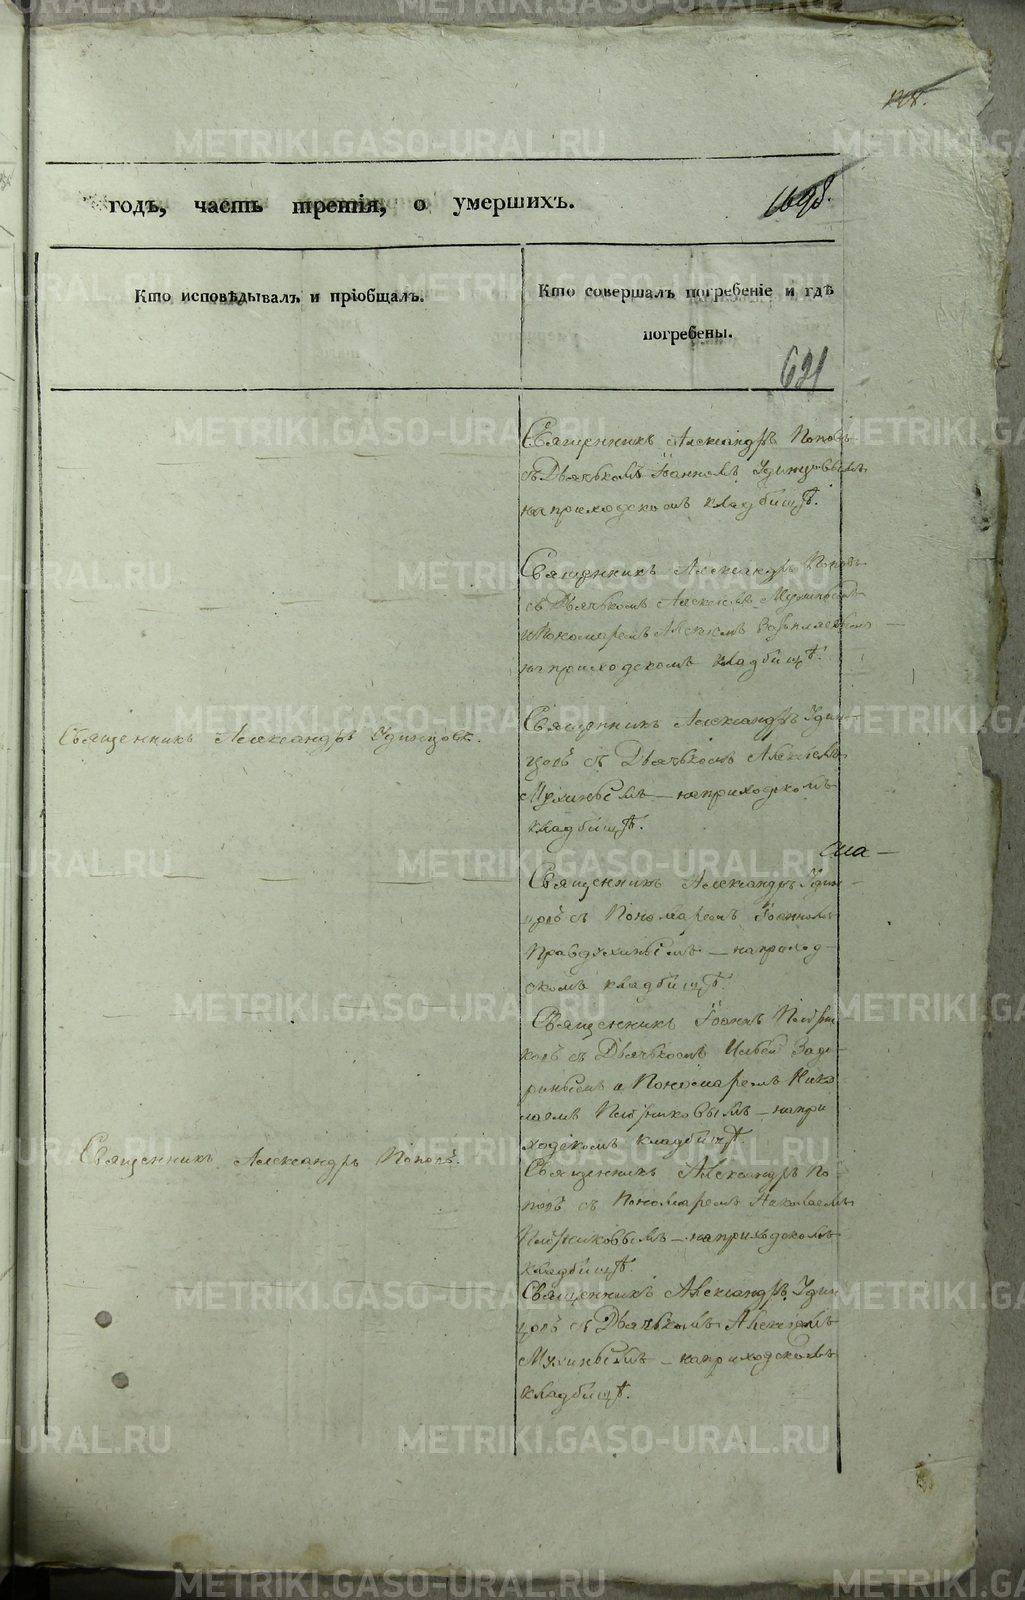 годъ, часть третія, о умершихъ.
1698.
Кто исповѣдывалъ и пріобщалъ.
Кто совершалъ погребеніе и гдѣ
погребены.
621
Священникъ Александръ Поповъ
съ Дьячькомъ Іоанномъ Удинцовымъ
на приходскомъ кладбищѣ.
Священникъ Александръ Поповъ
съ Дьячькомъ Алексѣемъ Мухинымъ
и Пономаремъ
на приходскомъ кладбищѣ.
Священникъ Александръ Удинцовъ.
Священникъ Александръ Удин-
цовъ съ Дьячькомъ Алексѣемъ
Мухинымъ – на приходскомъ
кладбищѣ.
Священникъ Александръ Удин-
цовъ съ Пономаремъ Іоанномъ
Правдухинымъ – на приход-
скомъ кладбищѣ.
Священникъ Іоаннъ Плотни
ковъ съ Дьячькомъ Ильей Заде-
ринымъ и Пономаремъ Нико
лаемъ Плотниковымъ – на при
ходскомъ кладбищѣ.
Священникъ Александръ Поповъ.
Священникъ Александръ По-
повъ съ Пономаремъ Николаемъ
Плотниковымъ – на приходскомъ
кладбищѣ.
Священникъ Александръ Удин-
цовъ съ Дьячькомъ Алексѣемъ
Мухинымъ – на приходскомъ
кладбищѣ.
METRIKI.GASO-URAL.RU